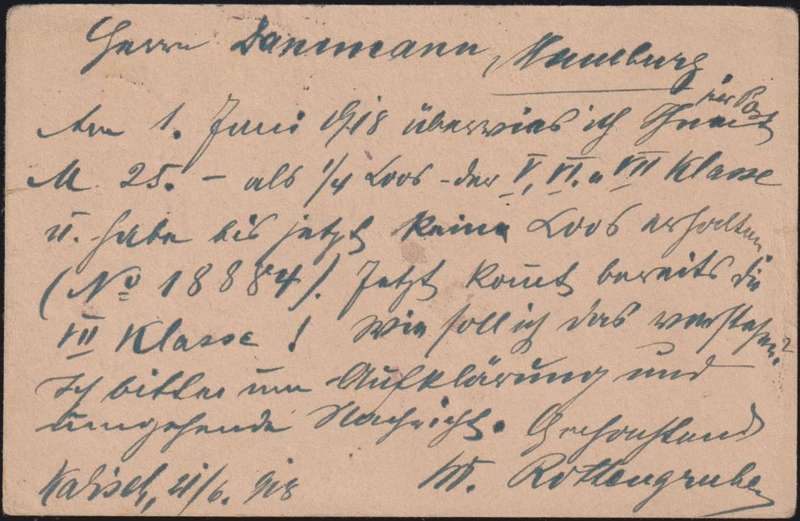 Herrn Dannmann, Hamburg
per Post
Am 1. Juni 1918 überwies ich Ihnen
M 25.- als 1/4 Loos der V, VI. u VII Klasse
u. habe bis jetzt keine Loos erhalten
(No 18884). Jetzt komt bereits die
VII Klasse! Wie soll ich das verstehen?
Ich bitte um Aufklärung und
umgehende Nachricht. Hochachtend
Kalisch, 21/6. 918 M. Rottengruber